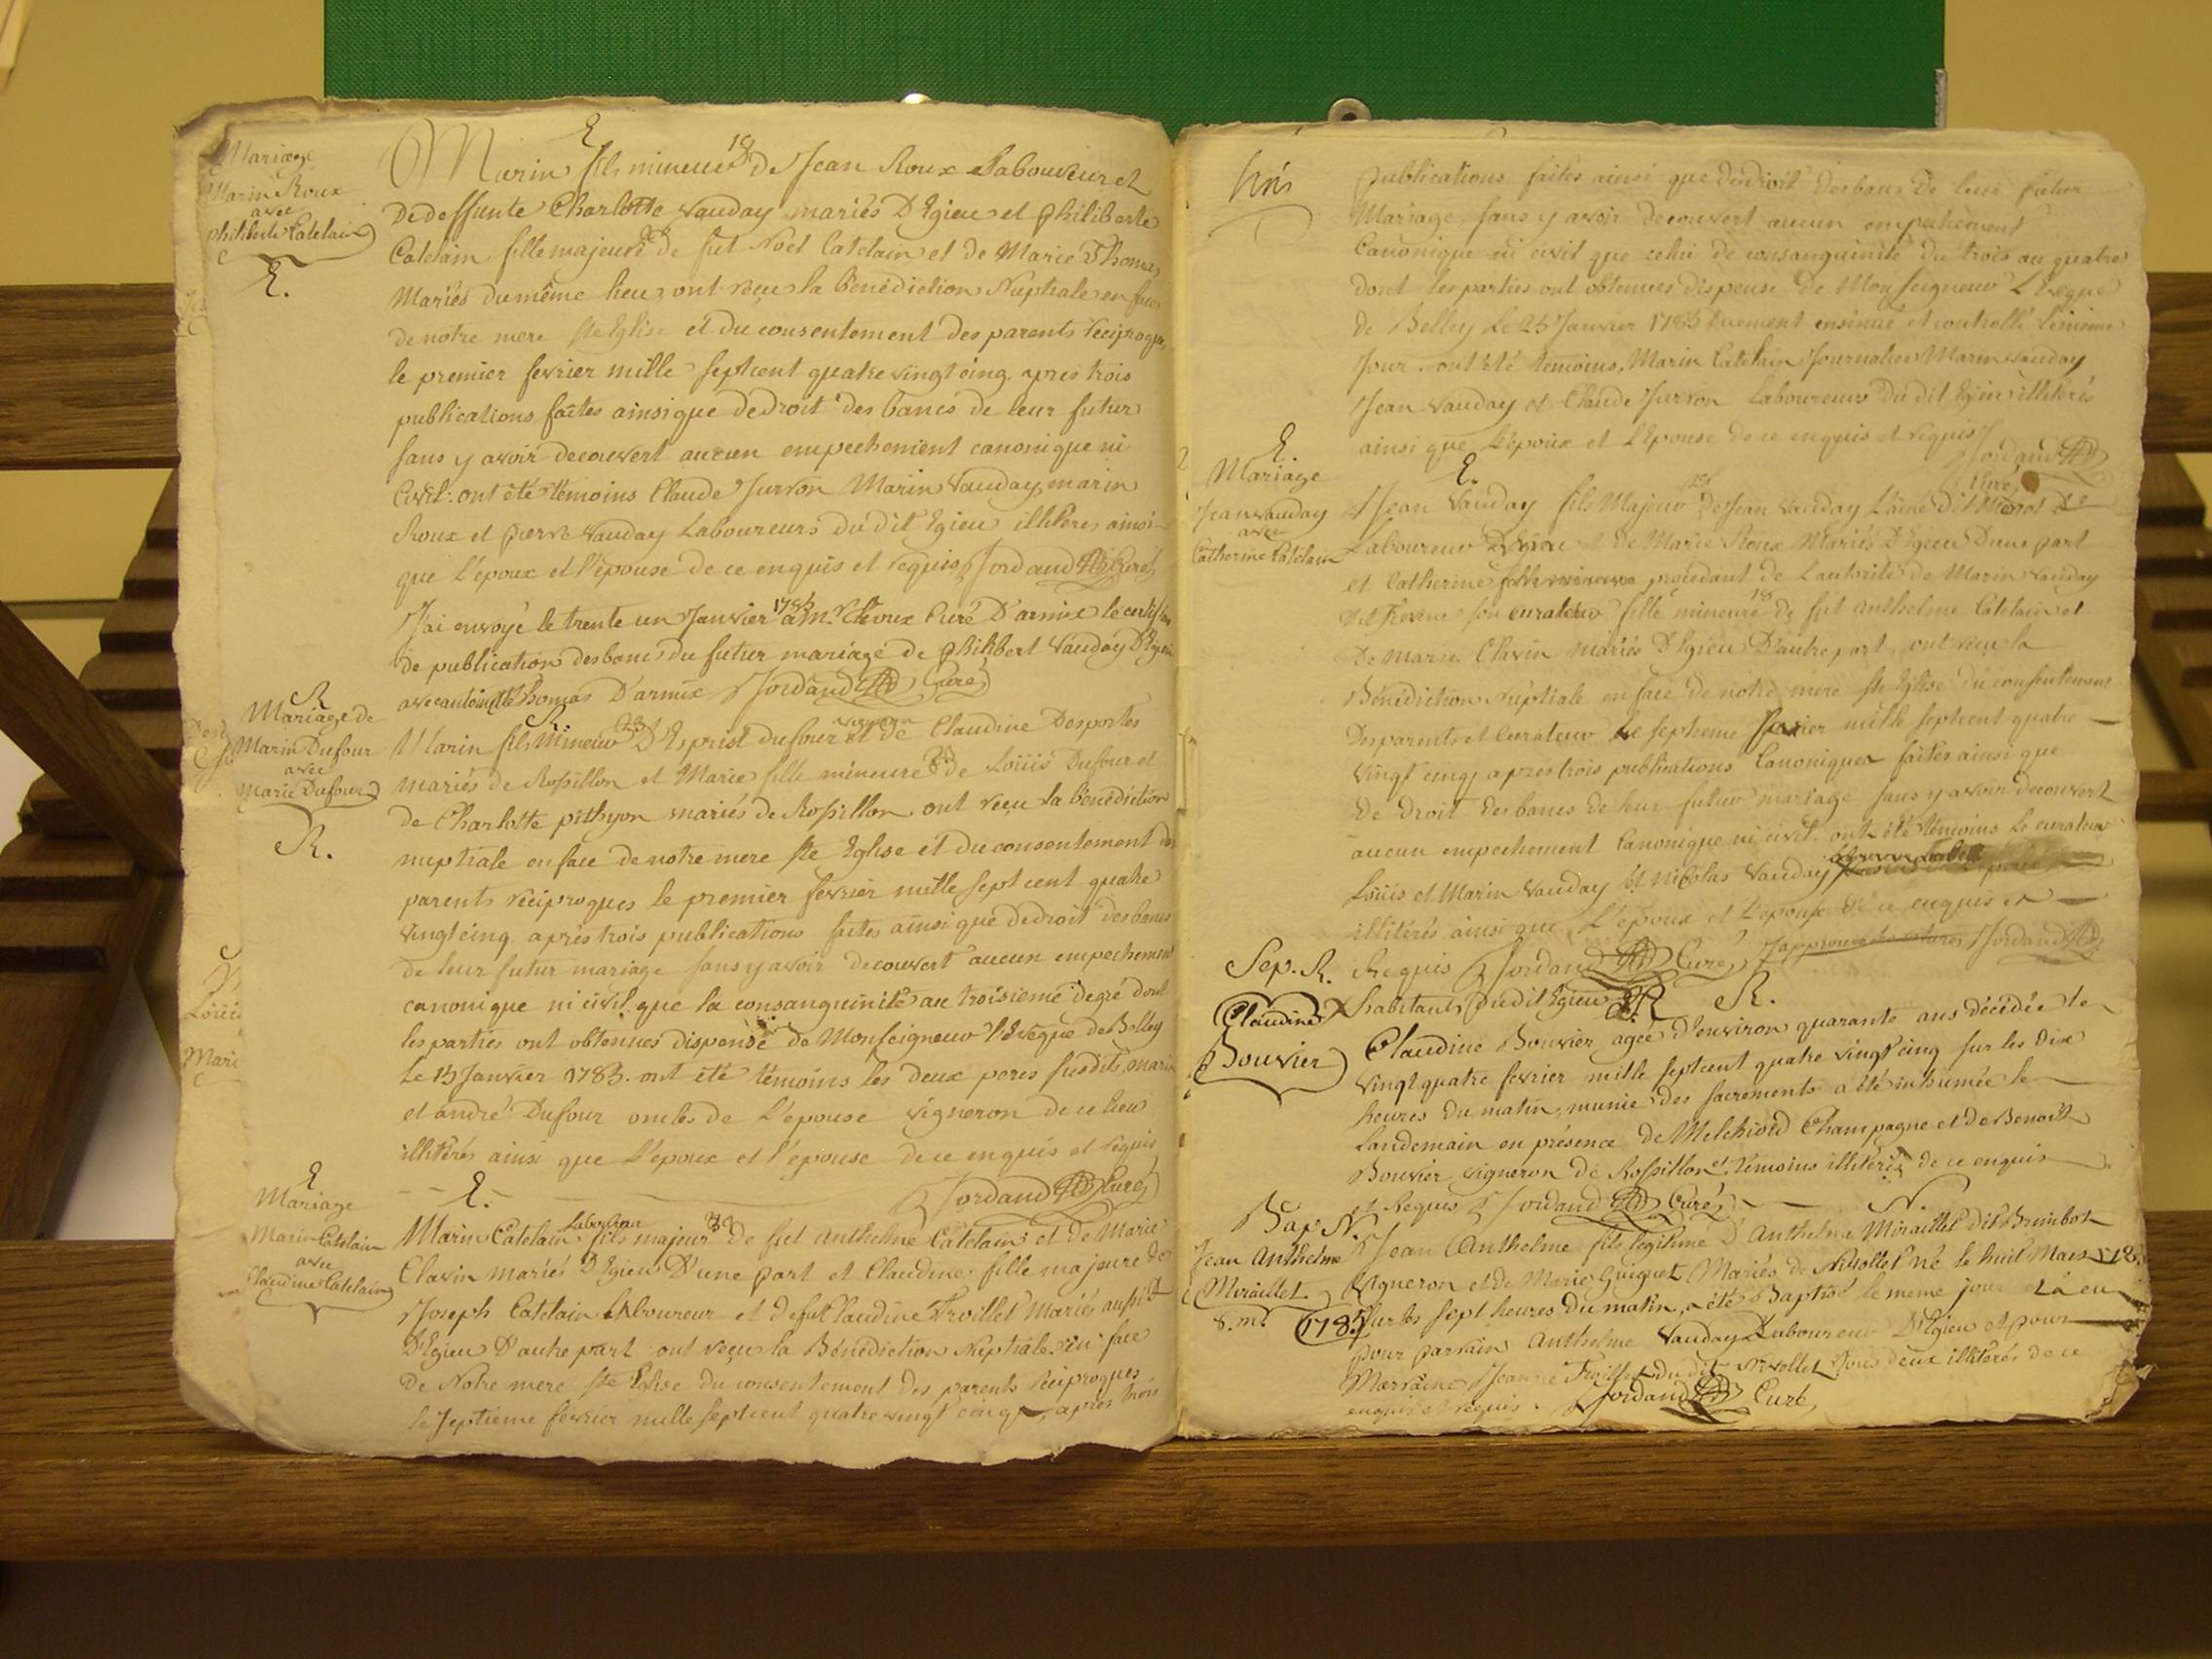 Mariage
Marin Roux
avec
philiberte Catelain
E.
E
Marin fils mineur 18 de Jean Roux Laboureur et
De deffunte Charlotte vauday mariés D'Egieu et philiberte
Catelain fille majeure de fut Noel Catelain et de Marie Thomas
Mariés du même lieu, ont reçu la bénédiction Nuptiale en face
de notre mere ste Eglise et du consentement des parents réciproques
le premier fevrier mille septcent quatre vingt cinq. après trois
publications faites ainsi que de droit des bancs de leur futur
sans y avoir decouvert aucun empechement canonique ni
Civil: ont été témoins Claude Jurron Marin Vauday, marin
Roux et pierre Vauday Laboureurs du dit Egieu illiteres ainsi
que L'époux et l'épouse de ce enquis et requis Jordand Curé
J'ai envoyé le trente un Janvier 1785 a Mr. Curé D'armix le certificat
de publication des bancs du futur mariage de philibert Vauday D'Egieu
avec antoinette Thomas D'armix Jordand Curé
R
Mariage de
Marin Dufour
avec
Marie Dufour
R.
R.
Marin fils Mineur 23 D'Esprist dufour vigneron et de Claudine Desportes
mariés de Rossillon et Marie fille mineure de Loüis Dufour et
de Charlotte pithyon mariés de Rossillon, ont reçu la bénédiction
nuptiale en face de notre mere ste Eglise et du consentement des
parents réciproques le premier fevrier mille sept cent quatre
vingt cinq après trois publications faites ainsi que de droit des bancs
de leur futur mariage sans y avoir decouvert aucun empechement
canonique ni civil que la consanguinité au troisieme degré dont
les parties ont obtenues dispense de Monseigneur l'Evêque de Belley
Le 13 Janvier 1785. ont été témoins les deux peres susdits, marin
et andré Dufour oncles de L'epouse vigneron de ce lieu
illitérés ainsi que L'époux et l'épouse de ce enquis et requis
Jordand Curé
E
Mariage
Marin Catelain
avec
Claudine Catelain
E.
Marin Catelain Laboureur fils majeur de fut Anthelme Catelain et de Marie
Clavin mariés D'Egieu D'une part et Claudine fille majeure de
Joseph Catelain Laboureur et de fut Claudine Troillet Mariés aussi
D'Egieu D'autre part ont reçu la Bénédiction Nuptiale en face
de Notre mere ste Eglise du consentement des parents réciproques
le Septieme fevrier mille septcent quatre vingt cinq, après trois
trois
publications faites ainsi que de droit des bans de leur futur
Mariage sans y avoir decouvert aucun empechement
Canonique ni civil que celui de consanguinité du trois au quatre
dont les parties ont obtenues dispense de Monseigneur L'Evêque
de Belley Le 25 Janvier 1785 duement insinué et controllé le même
Jour. ont été témoins, Marin Catelain Journalier Marin vauday
Jean Vauday et Claude Jurron Laboureurs du dit Egieu illitérés
ainsi que L'époux et L'épouse de ce enquis et requis
Jordand
Curé
E.
Mariage
Jean vauday
avec
Catherine Catelain
E.
Jean Vauday fils Majeur de Jean Vauday L'ainé dit
Laboureur et de Marie Roux Mariés D'Egieu D'une part
et Catherine procédant de L'autorité de Marin Vauday
son curateur fille mineure 18 de fut Anthelme Catelain et
De marie Clavin mariés D'Egieu D'autre part, ont reçu la
Bénédiction Nuptiale en face de notre mere ste Eglise du consentement
Des parents et Curateur le septieme fevrier mille septcent quatre
vingt cinq après trois publications Canoniques faites ainsi que
De droit des bancs de leur futur mariage sans y avoir decouvert
aucun empechement Canonique ni civil. ont été témoins Le curateur
Loüis et Marin Vauday et Nicolas Vauday
illitérés ainsi que L'époux et L'épouse de ce enquis et
Requis Jordand Curé J'approuve les ratures Jordand
habitants du dit Egieu
Sep. R.
Claudine
Bouvier
R.
Claudine Bouvier agée d'environ quarante ans décédée le
vingt quatre fevrier mille septcent quatre vingt cinq sur les dix
heures du matin, munie des sacrements a été inhumée le
Landemain en présence de Melchiord Champagne et de Benoit
Bouvier vigneron de Rossillon et témoins illitérés de ce enquis
et Requis Jordand Curé
Bap. N.
Jean Anthelme
Miraillet
8. m.
1785
N.
Jean Anthelme fils légitime D'Anthelme Miraillet dit Brimbot
Vigneron et de Marie Guiguet Mariés de Nivollet né le huit Mars
sur les sept heures du matin, a été Baptisé le meme jour et a eu
pour parrain Anthelme Vauday Laboureur D'Egieu et pour
Marraine Jeanne Troillet du dit Nivollet tous deux illitérés de ce
enquis et requis. Jordand Curé